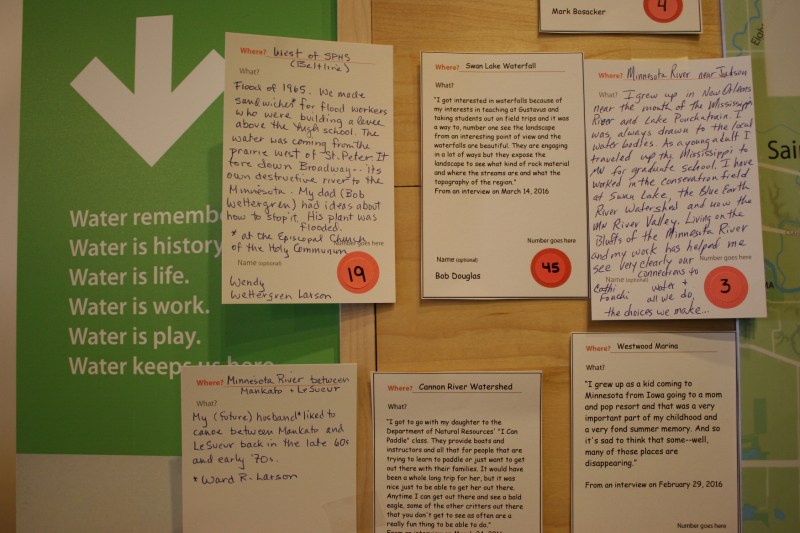 4
Mark Bosacker
Water remembe
Water is history
Water is life.
Water is work.
Water is play.
Water keeps us here
Where? West of SPHS
(Beltline)
What?
Flood of 1965. We made
sandwiches for flood workers
who were building a levee
above the high school. The
water was coming from the
prairie west of St. Peter. It
tore down Broadway-- its
own destructive river to the
Minnesota. My dad (Bob
Wettergren) had ideas about
how to stop it. His plant was
flooded.
* at the Episcopal Church
of the Holy Communion
Number goes here
Name (optional)
19
Wendy
Wettergren Larson
Where? Swan Lake Waterfall
What?
"I got interested in waterfalls because of
my interests in teaching at Gustavus and
taking students out on field trips and it was
a way to, number one see the landscape
from an interesting point of view and the
waterfalls are beautiful. They are engaging
in a lot of ways but they expose the
landscape to see what kind of rock material
and where the streams are and what the
topography of the region."
From an interview on March 14, 2016
Number goes here
Name (optional)
45
Bob Douglas
Where? Minnesota River near Judson
What? I grew up in New Orleans
near the mouth of the Mississippi
River and Lake Ponchatrain. I
was always drawn to the local
water bodies. As a young adult I
traveled up the Mississippi to
MN for graduate school. I have
worked in the conservation field
at Swan Lake, the Blue Earth
River Watershed and now the
MN River Valley. Living on the
Bluffs of the Minnesota River
and my work has helped me
see very clearly our
Number goes here
Name (optional)
connections to
water +
all we do,
the choices we make...
Fouchi
3
Where? Minnesota River between
Mankato + LeSueur
What?
My (future) husband* liked to
canoe between Mankato and
LeSueur back in the late 60s
and early '70s.
* Ward R. Larson
Where? Cannon River Watershed
What?
"I got to go with my daughter to the
Department of Natural Resources' "I Can
Paddle" class. They provide boats and
instructors and all that for people that are
trying to learn to paddle or just want to get
out there with their families. It would have
been a whole long trip for her, but it was
nice just to be able to get her out there.
Anytime I can get out there and see a bald
eagle, some of the other critters out there
that you don't get to see as often are a
really fun thing to be able to do."
Where? Westwood Marina
What?
"I grew up as a kid coming to
Minnesota from Iowa going to a mom
and pop resort and that was a very
important part of my childhood and
a very fond summer memory. And so
it's sad to think that some--well,
many of those places are
disappearing."
From an interview on February 29, 2016
Number goes here
Sai